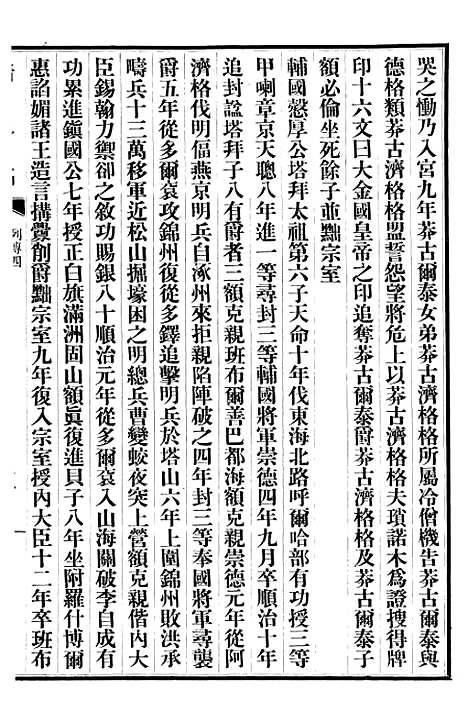 哭之慟乃入宮九年莽古爾泰女弟莽古濟格格所屬冷僧機告莽古爾泰與
德格類莽古濟格格盟誓怨望將危上以莽古濟格格夫瑣諾木爲證搜得牌
印十六文曰大金國皇帝之印追奪莽古爾泰爵莽古濟格格及莽古爾泰子
額必倫坐死餘子並黜宗室
輔國慤厚公塔拜太祖第六子天命十年伐東海北路呼爾哈部有功授三等
甲喇章京天聰八年進一等尋封三等輔國將軍崇德四年九月卒順治十年
追封諡塔拜子八有爵者三額克親班布爾善巴都海額克親崇德元年從阿
濟格伐明偪燕京明兵自涿州來拒親陷陣破之四年封三等奉國將軍尋襲
爵五年從多爾袞攻錦州復從多鐸追擊明兵於塔山六年上圍錦州敗洪承
疇兵十三萬移軍近松山掘壕困之明總兵曹變蛟夜突上營額克親偕內大
臣錫翰力禦卻之敘功賜銀八十順治元年從多爾袞入山海關破李自成有
功累進鎭國公七年授正白旗滿洲固山額眞復進貝子八年坐附羅什博爾
惠諂媚諸王造言搆釁削爵黜宗室九年復入宗室授內大臣十二年卒班布
列傳四